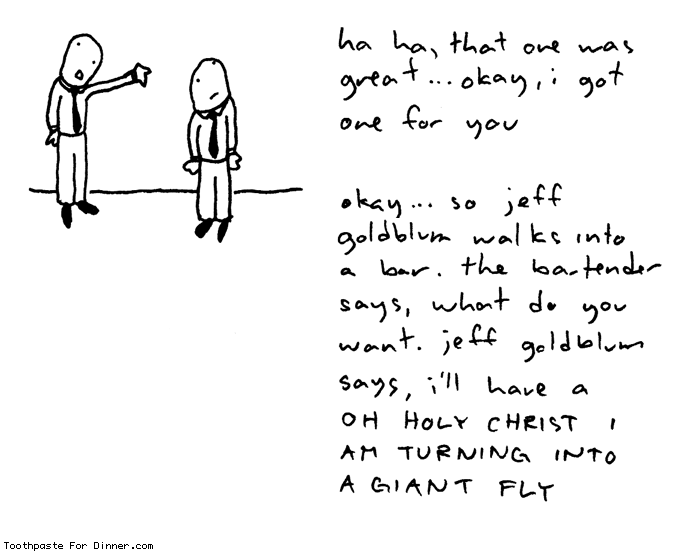 ha ha, that one was
great... okay, i got
one for you
okay... so jeff
goldblum walks into
a bar. the bartender
says, what do you
want. jeff goldblum
says, i'll have a
OH HOLY CHRIST I
AM TURNING INTO
A GIANT FLY
Toothpaste For Dinner.com